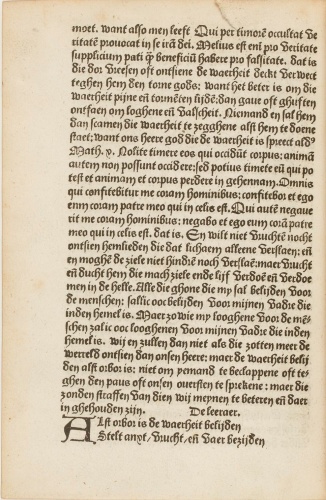 moet. want also men leest Qui per timorē occultat ve
ritatē prouocat in se irā dei. Melius est enī pro veritate
supplicium pati q̄ beneficiū habere pro falsitate. dat is
die dor vreesen oft ontsiene de waerheit deckt verwect
teghen hem den torne gods: want het beter is om die
waerheit pijne eñ tormētē lijdē: dan gaue oft ghiften
ontfaen om loghene eñ valscheit. Niemand en sal hem
dan scamen die waerheit te zegghene alst hem te doene
staet: want ons heere god die de waerheit is spreect aldꝰ
Math. x. Nolite timere eos qui occidūt corpus: animā
autem non possunt occidere: sed potius timete eū qui po
test et animam et corpus perdere in gehennam. Omnis
qui confitebitur me coram hominibus: confitebor et ego
eum coram patre meo qui in celis est. Qui autē negaue
rit me coram hominibus: negabo et ego eum corā patre
meo qui in celis est. dat is. En wilt niet vruchtē nocht
ontsien hemlieden die dat lichaem alleene verslaen: eñ
en moghē de ziele niet hindrē noch verslaē: maer vrucht
eñ ducht hem die mach ziele ende lijf verdoē eñ verdoe
men in de helle. Alle die ghone die my sal belijden voor
de menschen: sal ic ooc belijden voor mijnen vadre die
inden hemel is. Maer zo wie my looghene voor de mē
schen zal ic ooc looghenen voor mijnen vadre die inden
hemel is. wij en zullen dan niet als die zotten meer de
wereld ontsien dan onsen heere: maer de waerheit belij
den alst orbor is: niet om yemand te beclappene oft te
ghen den paus oft onsen ouersten te sprekene: maer die
zonden straffen van dien wij meynen te beteren eñ daer
in ghehouden zijn. De leeraer.
Alst orbor is de waerheit belijden
Stelt anxt, vrucht, eñ vaer bezijden